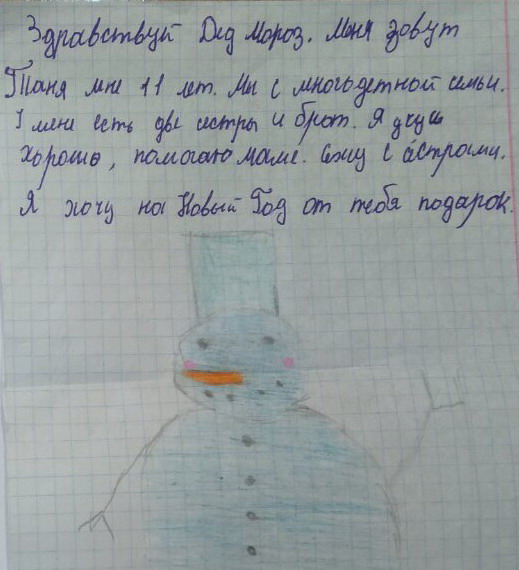 Здравствуй Дед Мороз. Меня зовут
Таня мне 11 лет. Мы с многодетной семьи.
У мене есть две сестры и брат. Я учусь
хорошо, помогаю маме. Сижу с сёстрами.
Я хочу на Новый Год от тебя подарок.